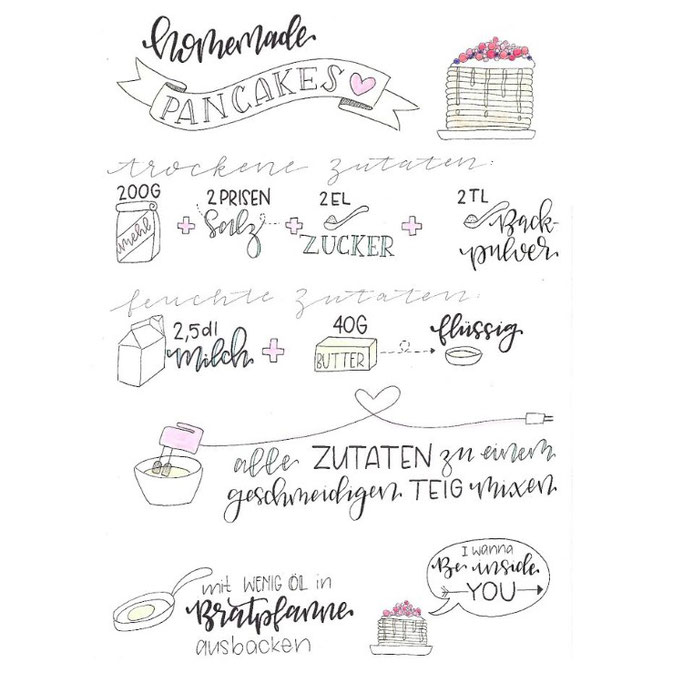 homemade
PANCAKES
trockene zutaten:
200G 2 PRISEN 2EL 2TL
mehl Salz ZUCKER Back-
pulver
feuchte zutaten:
2,5dl 40G flüssig
Milch BUTTER
alle ZUTATEN zu einem
geschmeidigen TEIG mixen
mit WENIG ÖL in
Bratpfanne
ausbacken
I wanna
Be inside
YOU